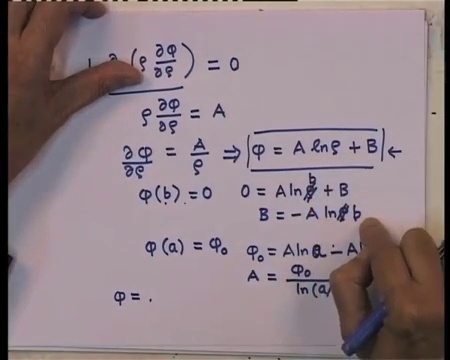 ∂ (ρ ∂φ/∂ρ) = 0
ρ ∂φ/∂ρ = A
∂φ/∂ρ = A/ρ ⇒ φ = A lnρ + B ←
φ(b) = 0 0 = A ln b + B
B = -A ln b
φ(a) = φ₀ φ₀ = A ln a - A l
A = φ₀/ln(a/
φ = .